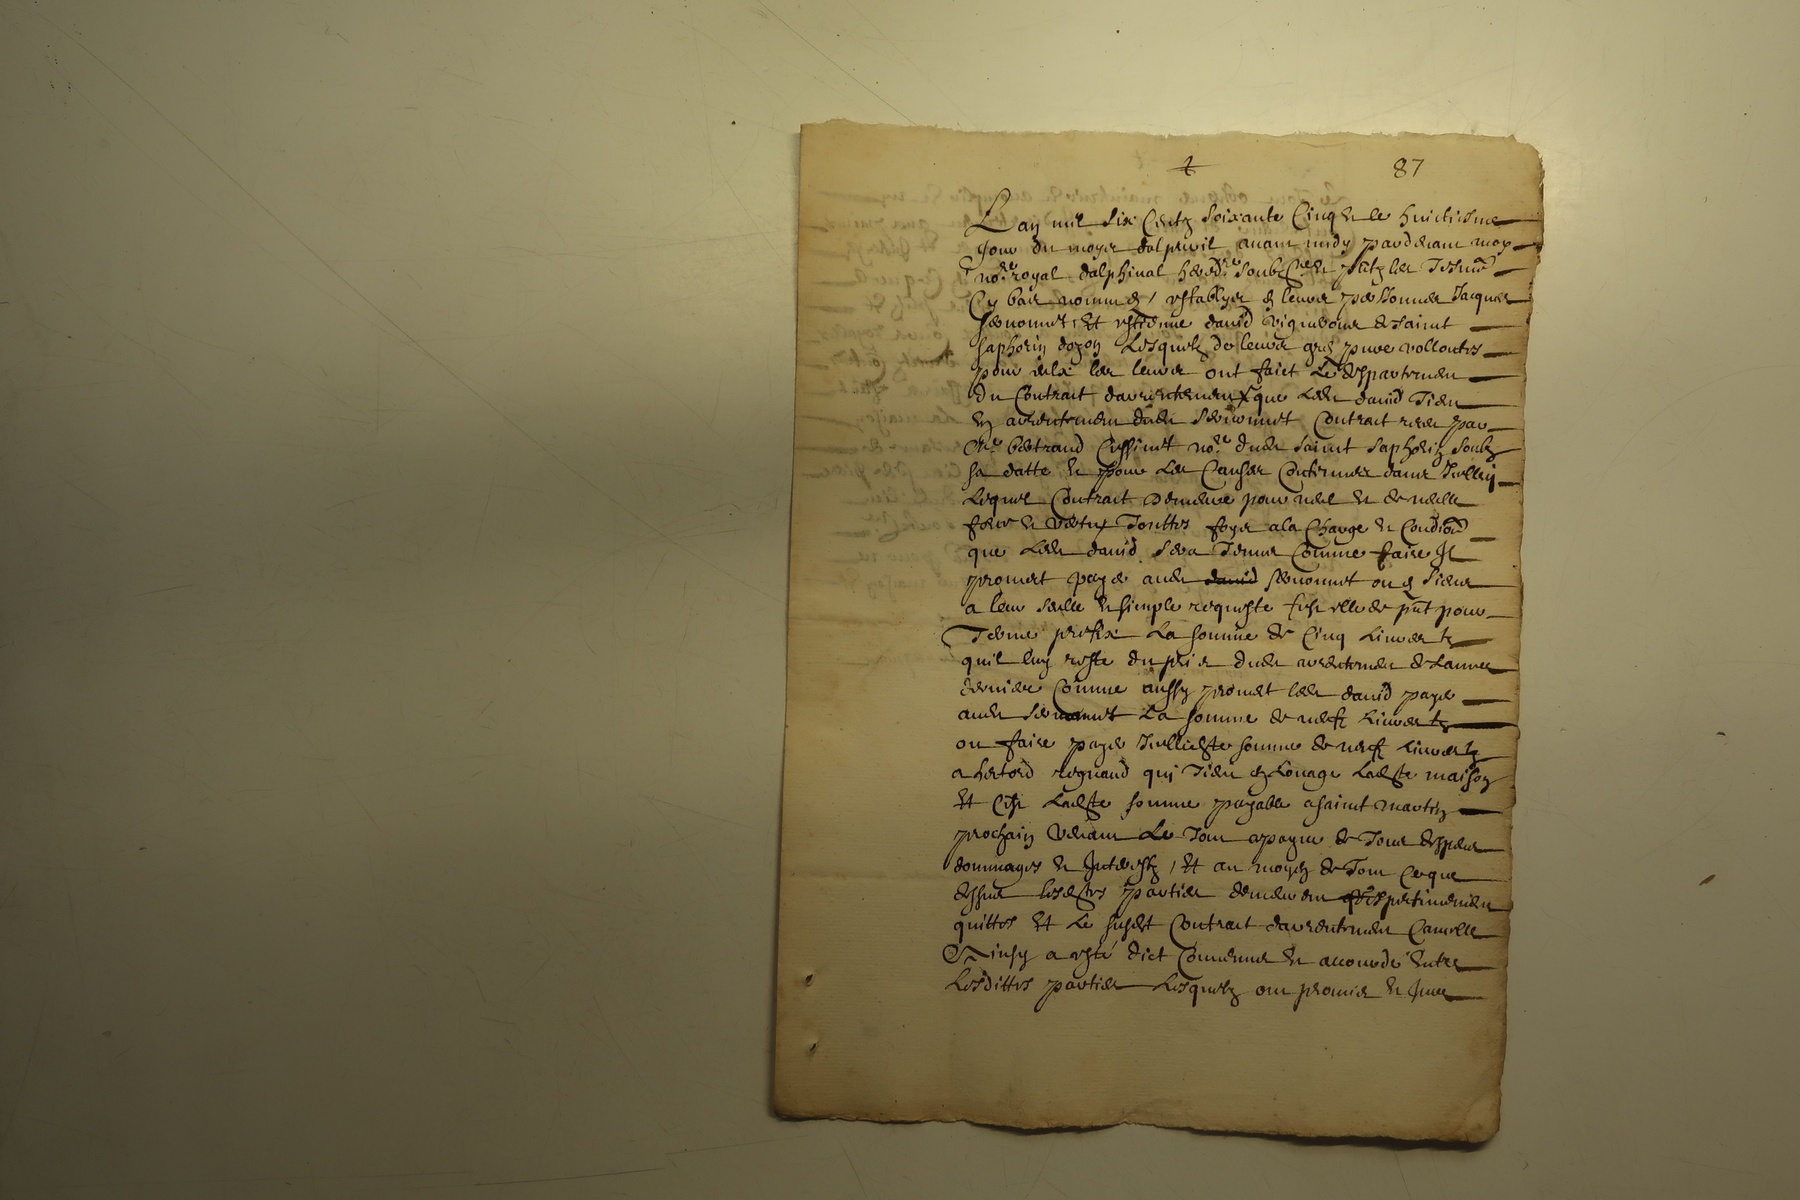 87
L an mil six Centz soixante Cinq et le huictiesme
Jour du moys dalpvril avant midy pardevant moy
no.re royal dalphinal hered.re soubz.ne et p̃ntz les Tesm.
Cy bas nommes / establyes et leurs personnes Jacques
Servonnet et estienne david vigneron de saint
saphorin dozon Lesquelz de leurs gres pure vollontes
pour eulx les leurs ont faict Le despartemen
du Contrait darrentement que Led. david Tien
en arrentement dud. Servonnet Contrait receu par
Me bertrand no.re dud. saint saphorin soubz
sa datte et pour Les Causes Contenues dans Icelluy
Lequel Contrait demeure pour nul et de nulle
force et vertu Touttes foys a la Charge et Condiõn
que Led. david sera Tenus Comme faire Il
promet payer aud. david servonnet ou es siens
a leur seulle et simple requeste p̃nt pour
Terme prefix La somme de Cinq Livres
quil luy reste du pris dud. arrentemen de Lannee
derniere Comme aussy promet led. david payer
aud. servonnet La somme de neuf Livres
ou faire payer Icelle somme de neuf Livres
a regnaud qui Tien en Louage Ladte maison
Et Ladte somme payable a saint martin
prochain venant Le Tout a payne de Tous despens
dommages et Interestz / Et au moyen de Tout Ce que
dessus lesdtes parties demeurent respectivemen
quittes Et Le susdt Contrait darrentemen Cancelle
Ainsy a esté dict Convenu et accourdé entre
Lesdittes parties Lesquelz ont promis et Jure